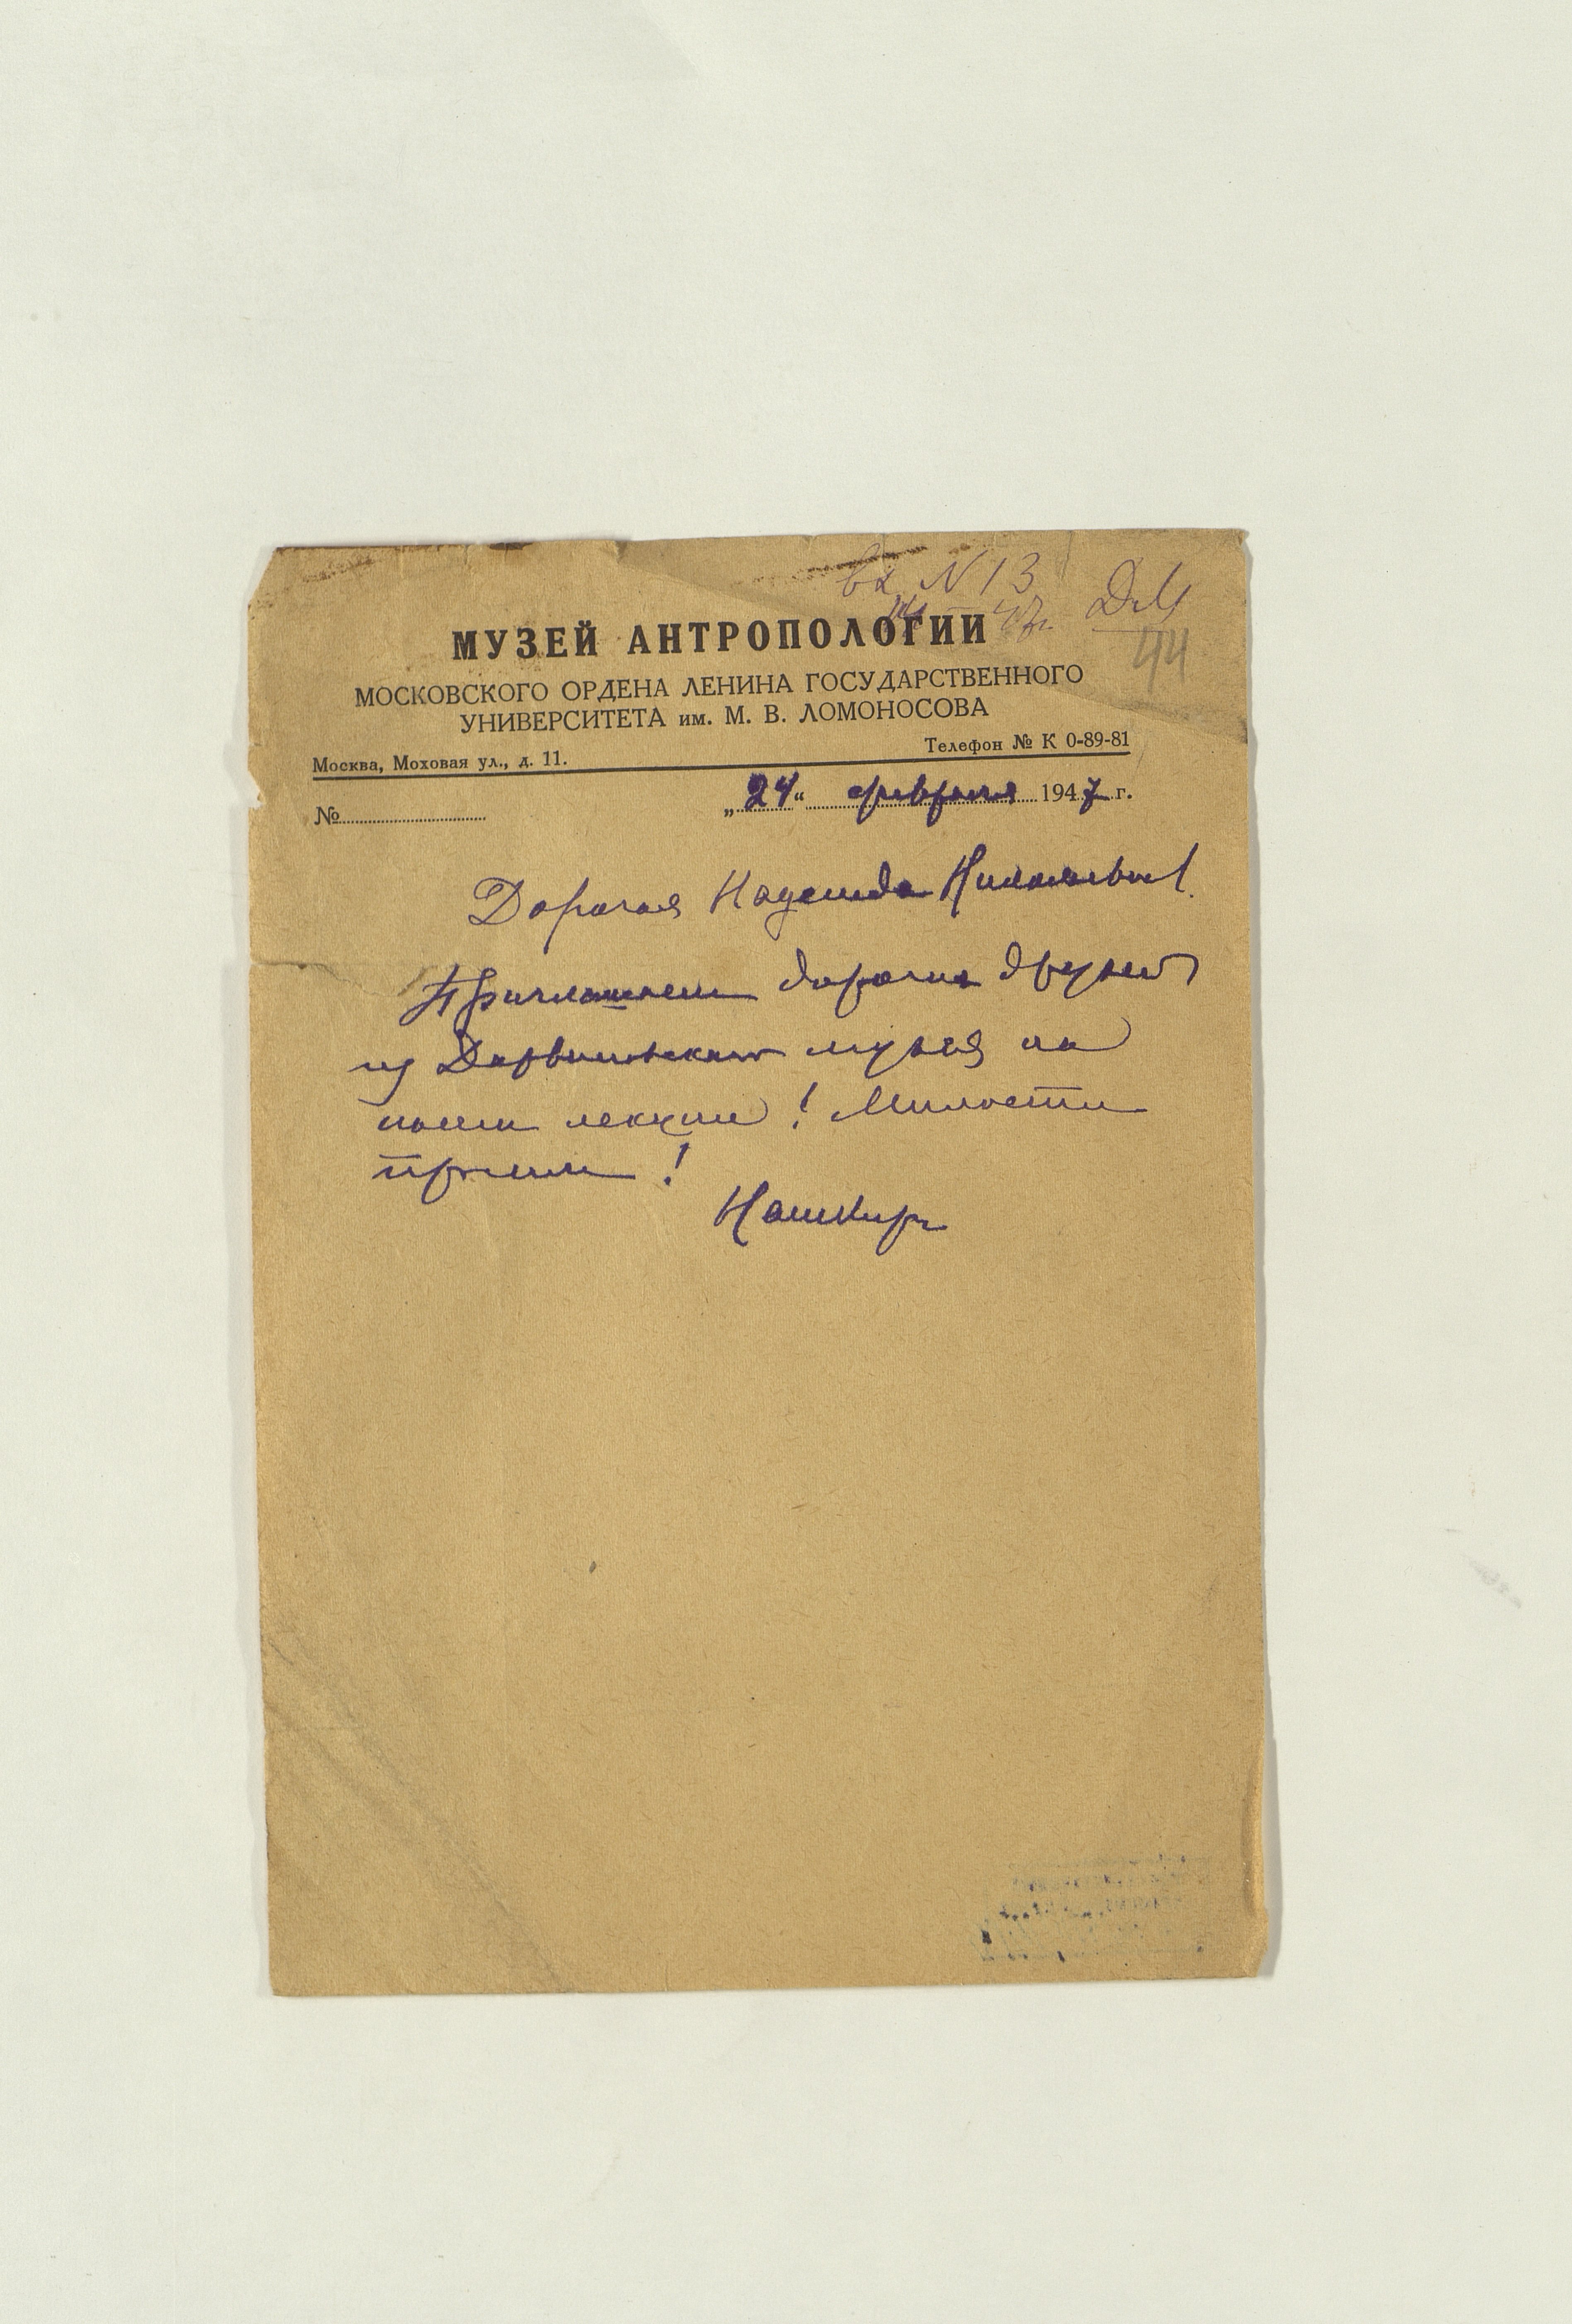 вх. N 13
14/III 47г. ДМ
44
МУЗЕЙ АНТРОПОЛОГИИ
МОСКОВСКОГО ОРДЕНА ЛЕНИНА ГОСУДАРСТВЕННОГО
УНИВЕРСИТЕТА им. М. В. ЛОМОНОСОВА
Москва, Моховая ул., д. 11. Телефон № К 0-89-81
№ „24“ февраля 1947 г.
Дорогая Надежда Николаевна!
Приглашаем дорогих друзей
из Дарвиновского музея на
наши лекции! Милости
просим!